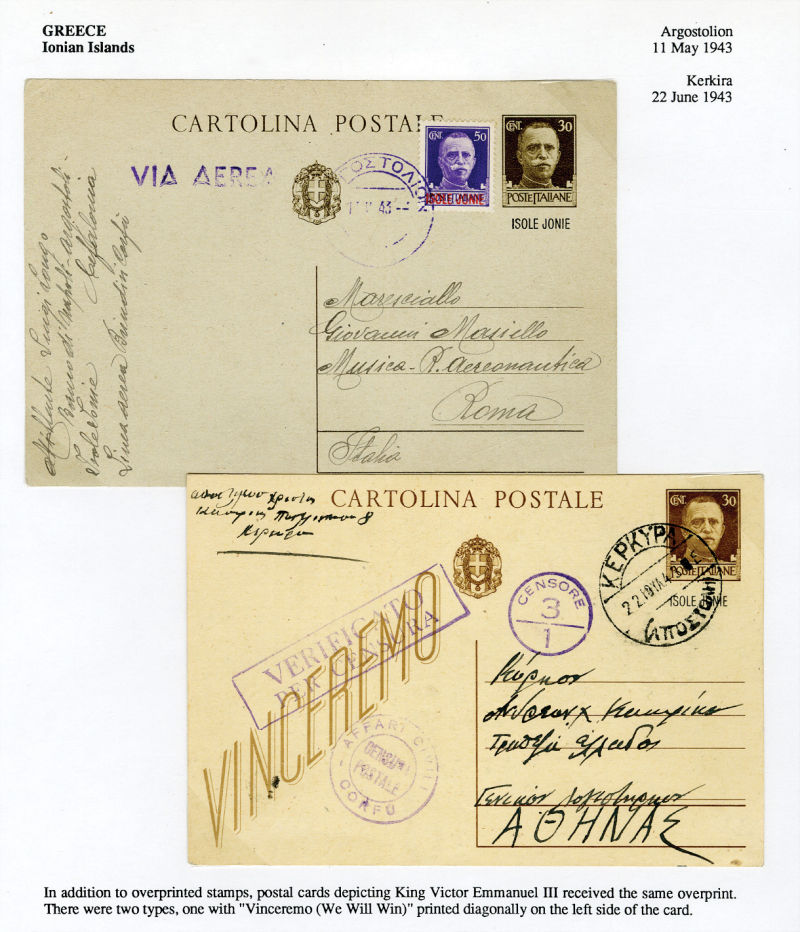 GREECE
Ionian Islands
Argostolion
11 May 1943
Kerkira
22 June 1943
CARTOLINA POSTALE
VIA AEREA
ΓΟΣΤΟΛΙΟΝ
43
CENT. 50
POSTE ITALIANE
ISOLE JONIE
CENT. 30
POSTE ITALIANE
ISOLE JONIE
Luigi
Cefalonia
Isole Jonie
Linea aerea Brindisi Corfù
Maresciallo
Giovanni Masiello
Musica - R. Aereonautica
Roma
Italia
CARTOLINA POSTALE
CENT. 30
POSTE ITALIANE
ISOLE JONIE
ΚΕΡΚΥΡΑ
(ΑΠΟΣΤΟΛΗ)
CENSORE
3
1
VERIFICATO
PER CENSURA
VINCEREMO
AFFARI CIVILI
CENSURA
POSTALE
CORFU
Κύριον
Γενικόν
ΑΘΗΝΑΣ
In addition to overprinted stamps, postal cards depicting King Victor Emmanuel III received the same overprint.
There were two types, one with "Vinceremo (We Will Win)" printed diagonally on the left side of the card.